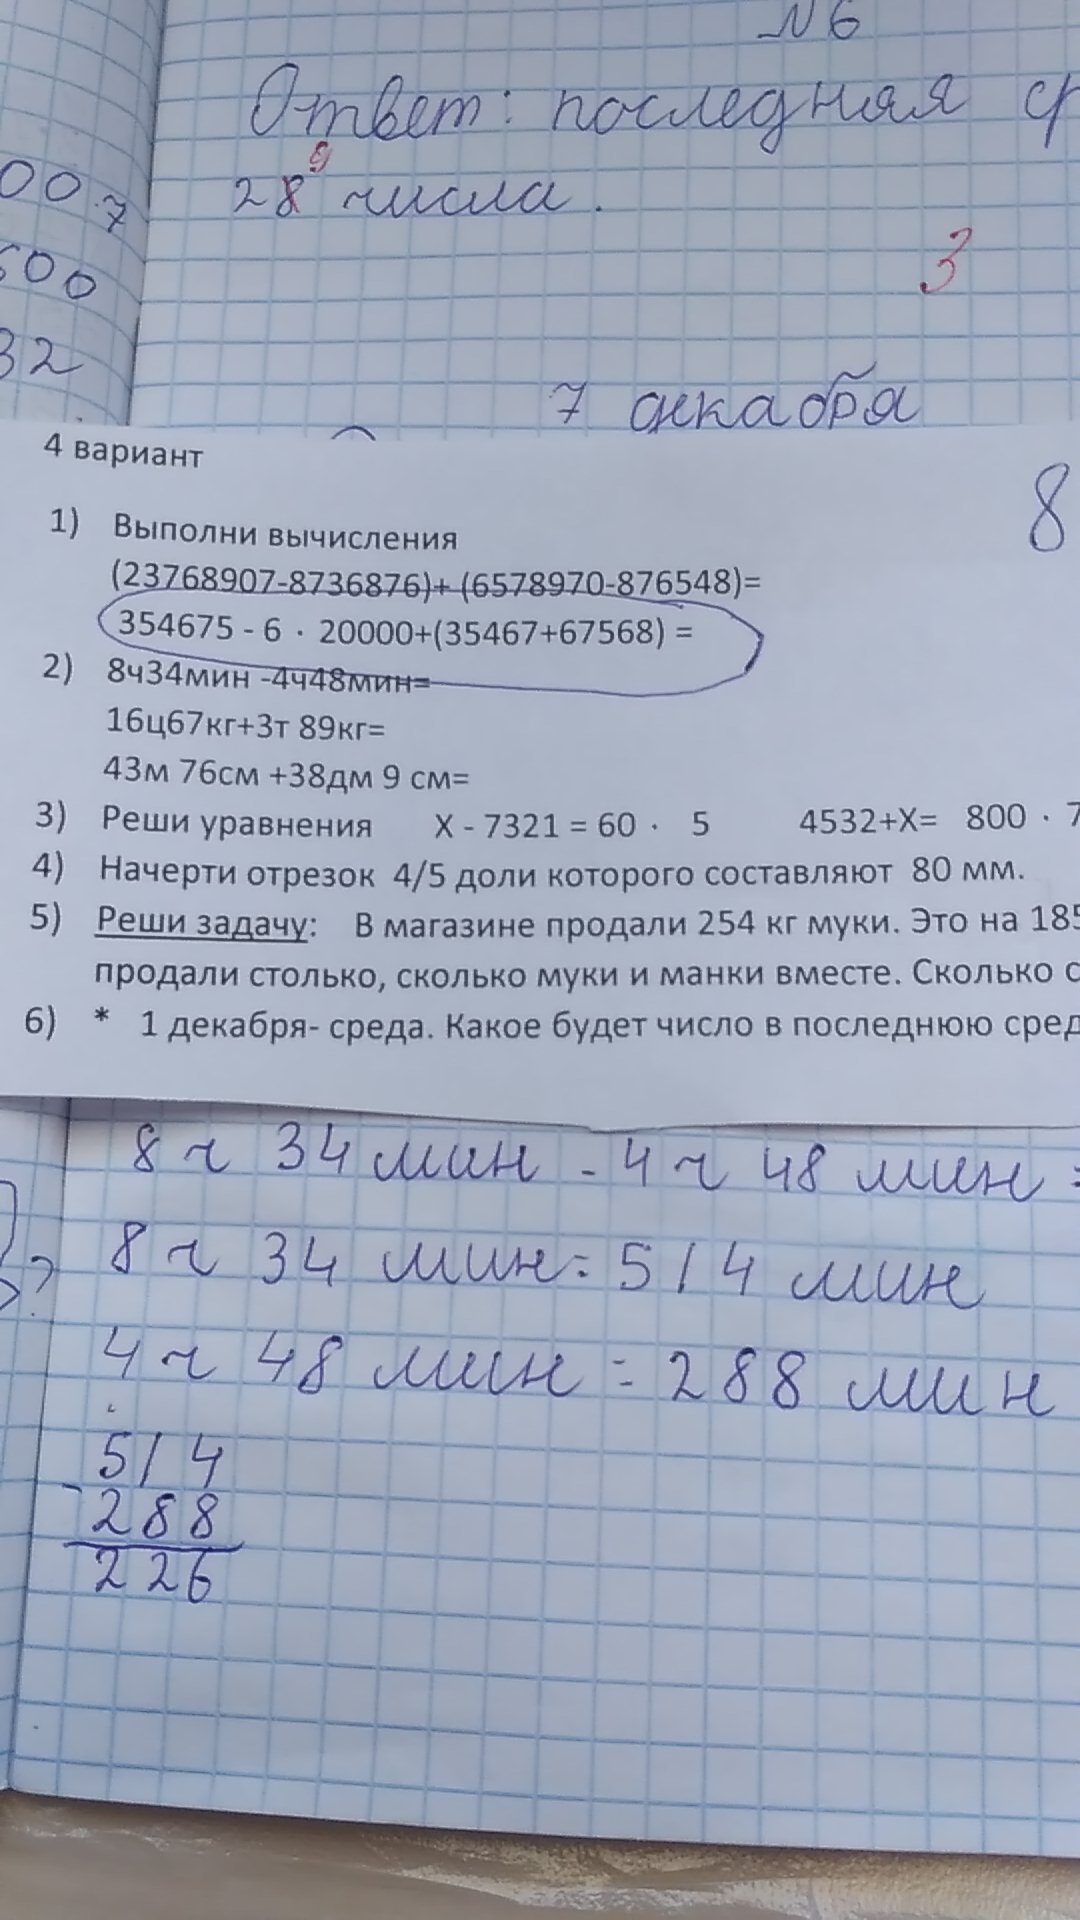 №6
Ответ: последняя ср
28 9 числа.
00.7
600
32
3
7 декабря
4 вариант
8
1) Выполни вычисления
(23768907-8736876)+ (6578970-876548)=
354675 - 6 · 20000+(35467+67568) =
2) 8ч34мин -4ч48мин=
16ц67кг+3т 89кг=
43м 76см +38дм 9 см=
3) Реши уравнения Х - 7321 = 60 · 5 4532+Х= 800 · 7
4) Начерти отрезок 4/5 доли которого составляют 80 мм.
5) Реши задачу: В магазине продали 254 кг муки. Это на 185
продали столько, сколько муки и манки вместе. Сколько с
6) * 1 декабря- среда. Какое будет число в последнюю сред
8 ч 34 мин - 4 ч 48 мин =
8 ч 34 мин = 514 мин
4 ч 48 мин = 288 мин
514
- 288
226